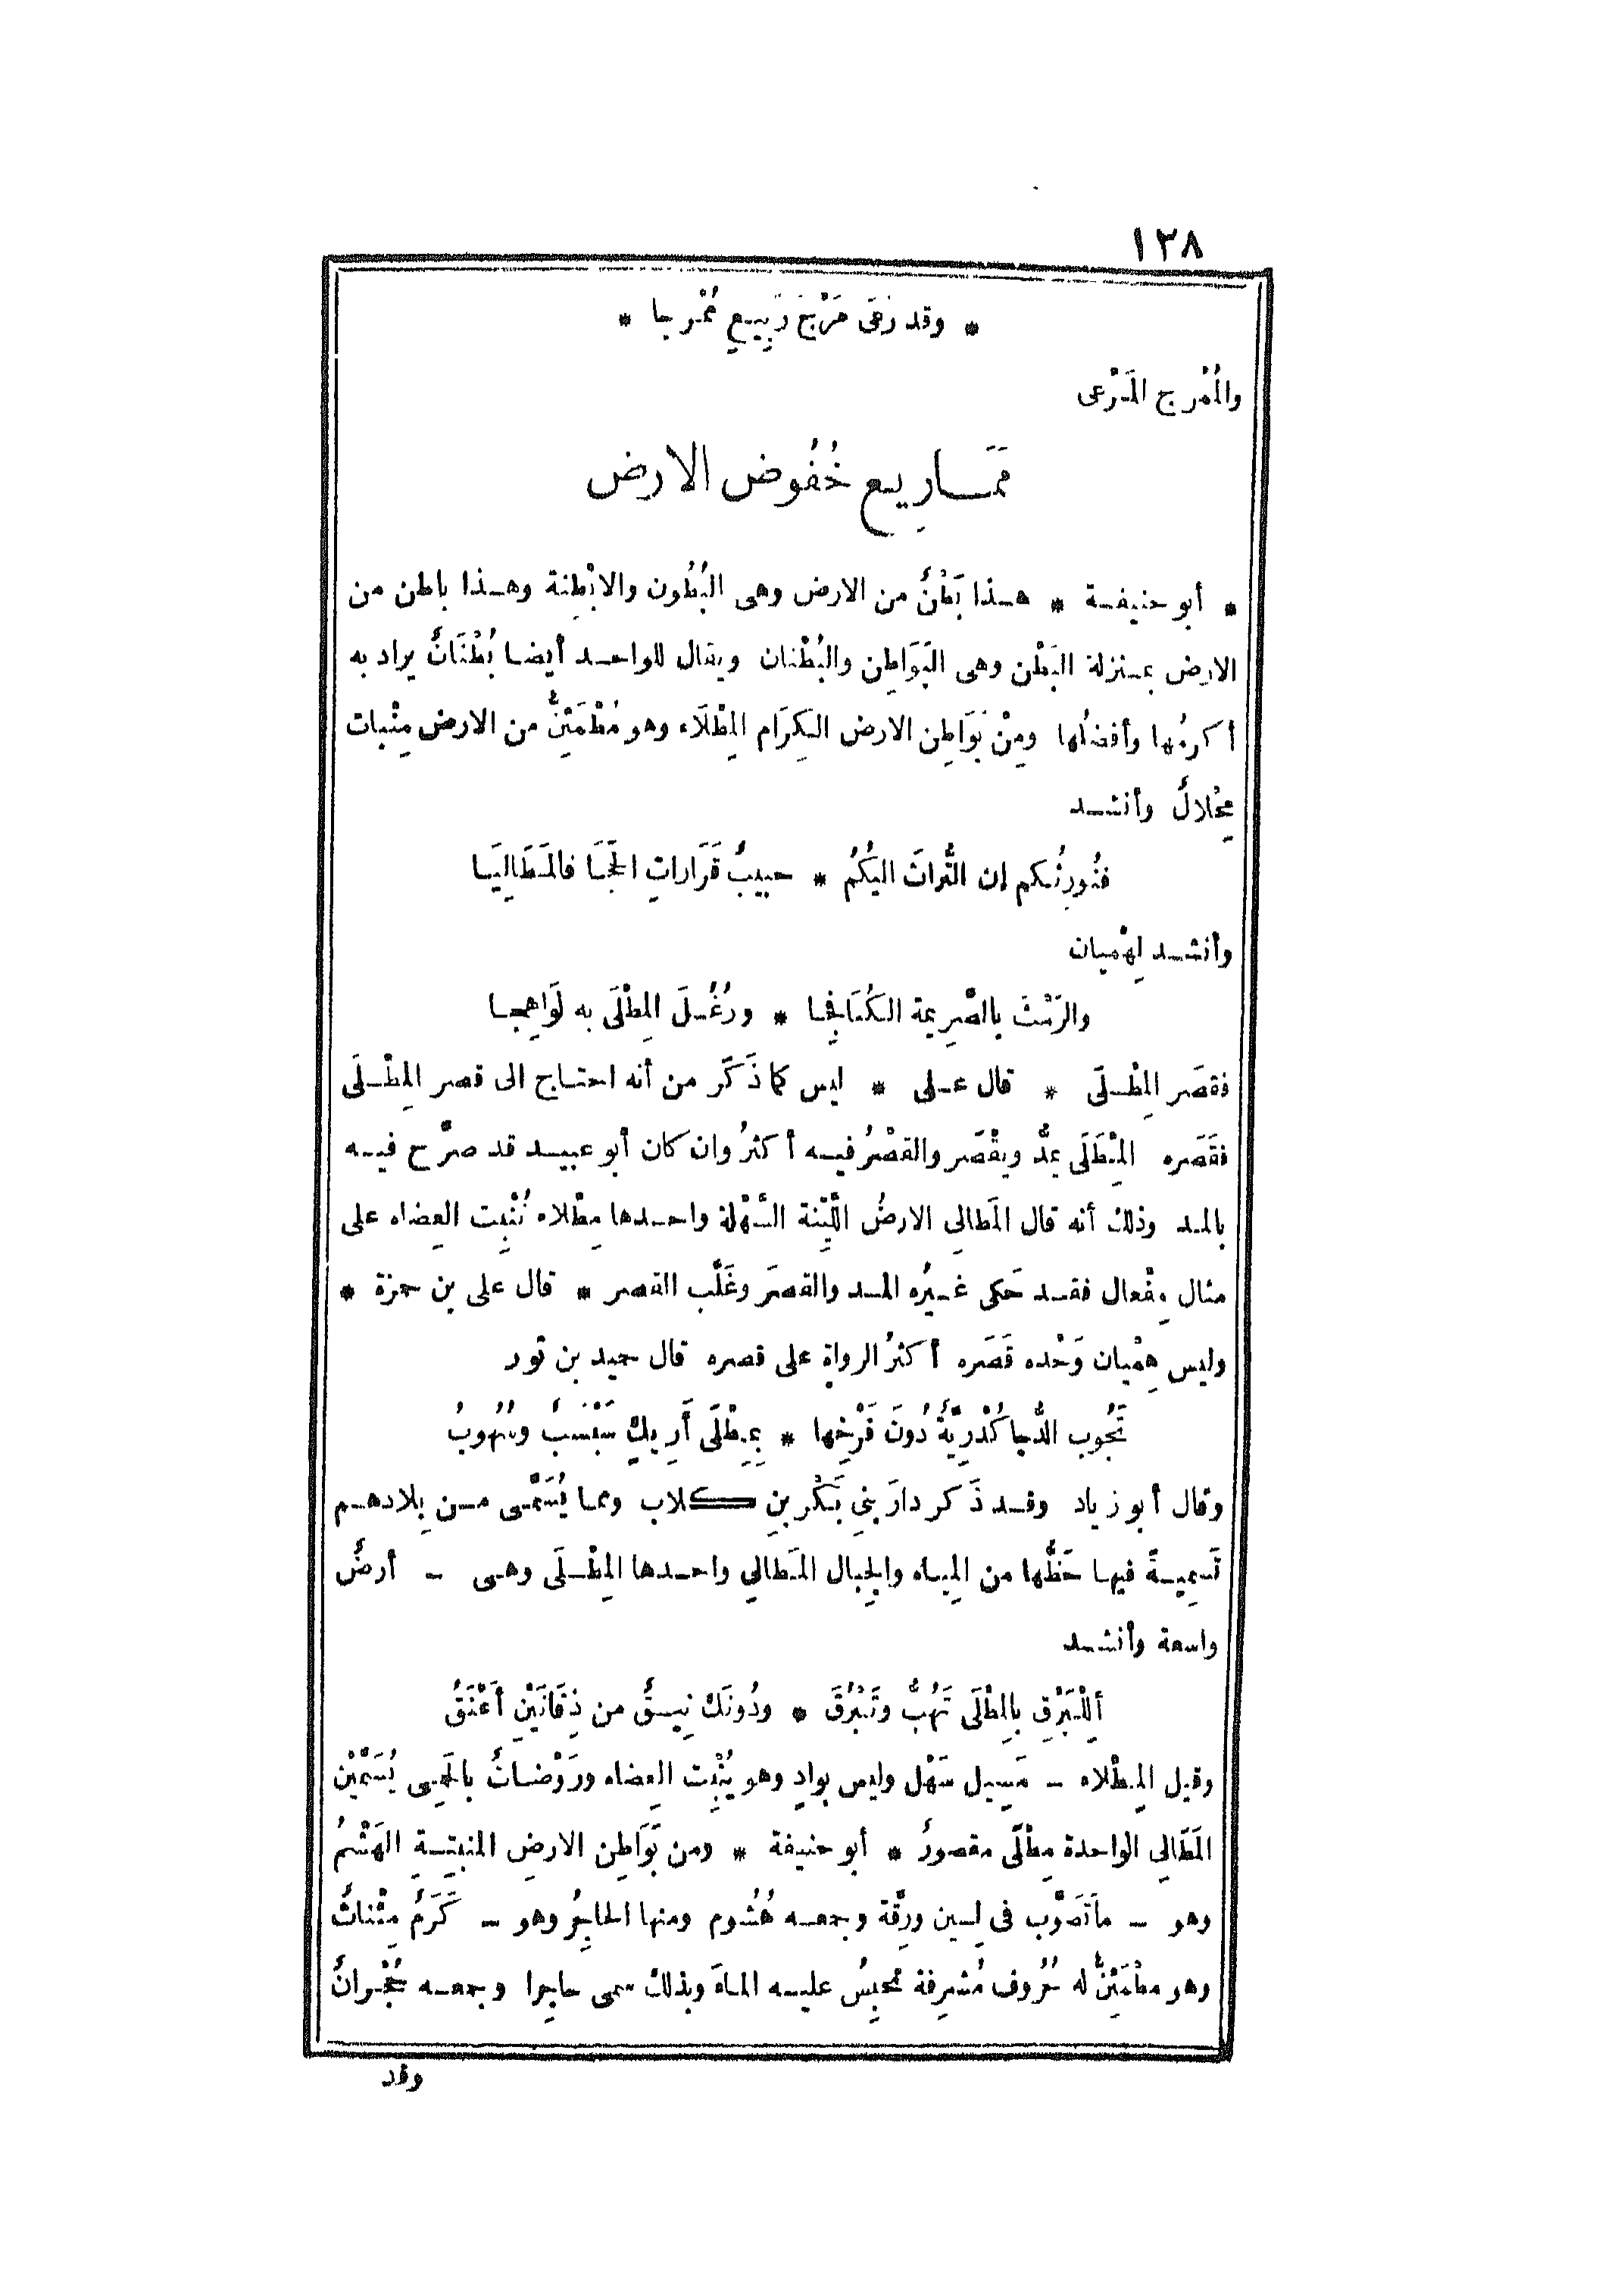 ١٣٨
* وقد رَعَى مَرْجَ رَبِيعٍ مُمْرجا *
والمُمْرج المَرْعى
مَمَاريع خُفُوض الارض
* أبو حنيفة * هذا بَطْنٌ من الارض وهى البُطُون والابْطِنة وهذا باطن من
الارض بمنزلة البَطْن وهى البَوَاطِن والبُطْنان ويقال للواحد أيضا بُطْنَانٌ يراد به
أكرمُها وأفضلُها ومِنْ بَوَاطِن الارض الكِرَام المِطْلَاء وهو مُطْمَئِنٌّ من الارض مِنْبات
مِحْلالٌ وأنشد
فنُورِثُكم ان التُّراثَ اليكُمُ * حبيبٌ قَرَاراتِ الحَجَا فالمَطَالِيَا
وأنشد لِهِمْيان
والرِّمْثَ بالصَّرِيمة الكُنَافِجا * ورُغُلَ المِطْلَى به لَوَاهِجا
فقصَر المِطْلَى * قال على * ليس كما ذَكَر من أنه احتاج الى قصر المِطْلَى
فقَصَره المِطْلَى يمدُّ ويقْصَر والقصْرُ فيه أكثرُ وان كان أبو عبيد قد صرَّح فيه
بالمد وذلك أنه قال المَطالِى الارضُ اللَّيِّنة السَّهْلة واحدها مِطْلاه تُنْبِت العِضاه على
مثال مِفْعال فقد حَكى غيرُه المد والقصرَ وغَلَّب القصر * قال على بن حمزة *
وليس هِمْيان وَحْده قَصَره أكثرُ الرواةِ على قصره قال حميد بن ثور
تَجُوب الدُّجا كُدْرِيَّةٌ دُونَ فَرْخِها * بِمِطْلَى أَرِيكٍ سَبْسَبٌ وسُهُوبُ
وقال أبو زياد وقد ذَكر دارَ بنى بَكْر بنِ كلاب ومما يُسَمَّى من بِلادهم
تَسمِيةً فيها حَظُّها من المِياه والجِبال المَطالِى واحدها المِطْلَى وهى - أرضٌ
واسعة وأنشد
أللْبَرْقِ بالمِطْلَى تَهُبُّ وتَبْرُقَ * ودُونَكَ نِيقٌ من ذِقَانَيْنِ أعْنَقُ
وقيل المِطْلاه - مَسِيل سَهْل وليس بوادٍ وهو يُنْبِت العِضاه ورَوْضاتٌ بالحِمى يُسَمَّيْن
المَطَالِى الواحدة مِطْلًى مقصورٌ * أبو حنيفة * ومن بَوَاطِن الارضِ المنبِتةِ الهَشْمُ
وهو - ماتَصَوَّب فى لِين ورِقّة وجمعه هُشُوم ومنها الحاجِرُ وهو - كَرَمٌ مِئْناثٌ
وهو مطمَئِنٌّ له حُروف مُشرِفة تَحبِسُ عليه الماءَ وبذلك سمى حاجِرا وجمعه حُجْرانٌ
وقد